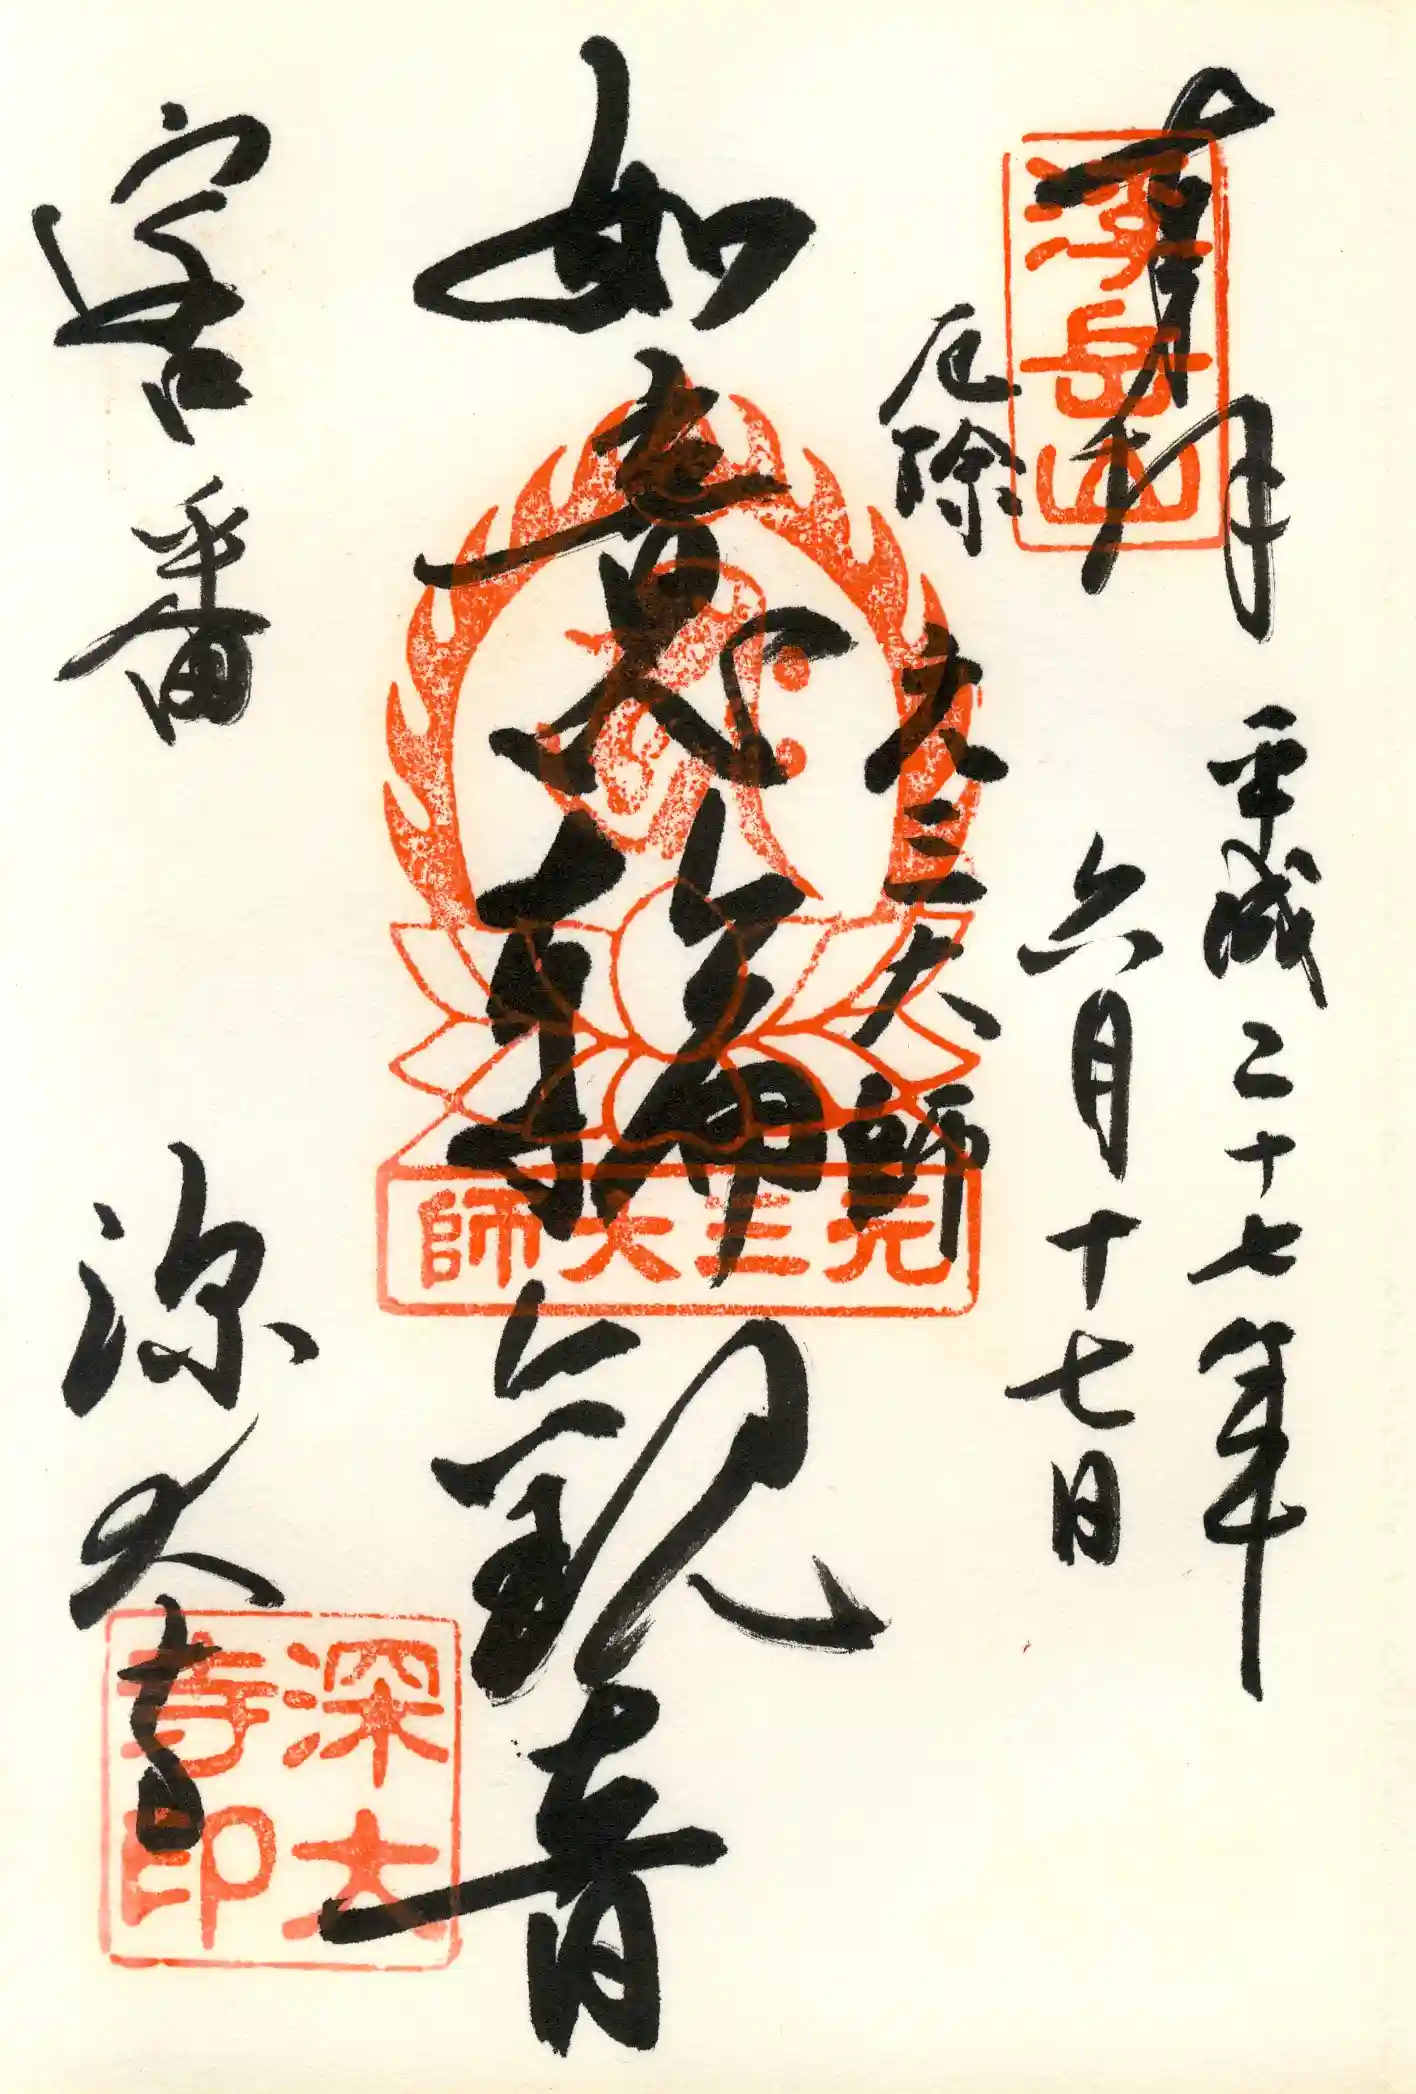 浮岳山
平成二十七年
六月十七日
厄除
元三大師
如意輪観音
元三大師
客番
深大寺
深大寺印